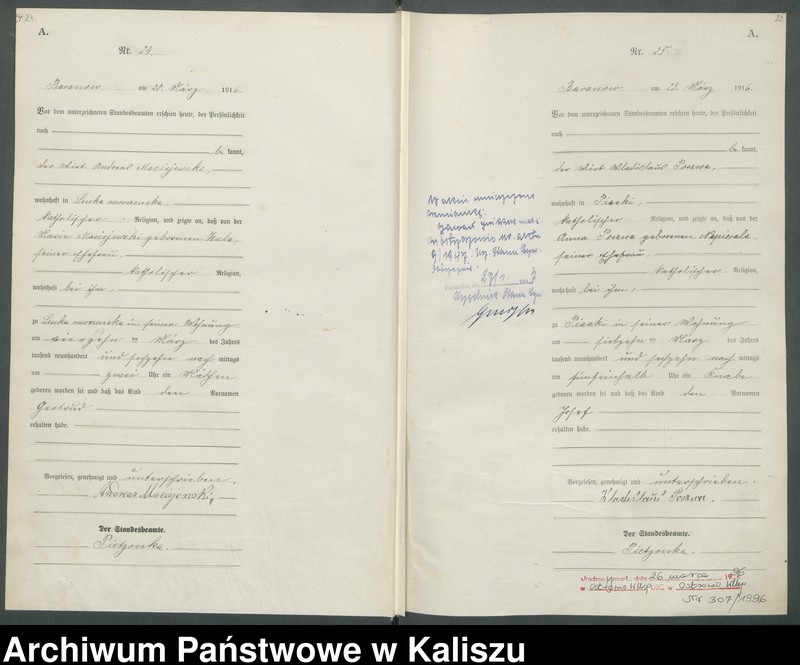 A.
Nr. 24.
Baranow am 20. März 1916.
Vor dem unterzeichneten Standesbeamten erschien heute, der Persönlichkeit
nach
be kannt,
der Wirt Andreas Maciejewski,
wohnhaft in
katholischer Religion, und zeigte an, daß von der
Marie Maciejewski geborenen
seiner Ehefrau,
katholischer Religion,
wohnhaft bei ihm,
zu in seiner Wohnung
am vierzehn ten März des Jahres
tausend neunhundert und sechzehn nach mittags
um zwei Uhr ein Mädchen
geboren worden sei und daß das Kind den Vornamen
Gertrud
erhalten habe.
Vorgelesen, genehmigt und unterschrieben.
Andreas Maciejewski,
Der Standesbeamte.
Pietzonka.
A.
25
Nr. 25.
Baranow am 23. März 1916.
Vor dem unterzeichneten Standesbeamten erschien heute, der Persönlichkeit
nach
be kannt,
der Wirt Wladislaus Pozwa,
wohnhaft in Pisaki,
katholischer Religion, und zeigte an, daß von der
Anna Pozwa geborenen Napierala
seiner Ehefrau
katholischer Religion,
wohnhaft bei ihm,
zu Pisaki in seiner Wohnung
am siebzehn ten März des Jahres
tausend neunhundert und sechzehn nach mittags
um fünfeinhalb Uhr ein Knabe
geboren worden sei und daß das Kind den Vornamen
Josef
erhalten habe.
Vorgelesen, genehmigt und unterschrieben.
Wladislaus Pozwa.
Der Standesbeamte.
Pietzonka.
dnia 26 marca 1996
w Ostrowie Wlkp USC w Ostrowie Wlkp.
Nr 307/1996
Archiwum Państwowe w Kaliszu